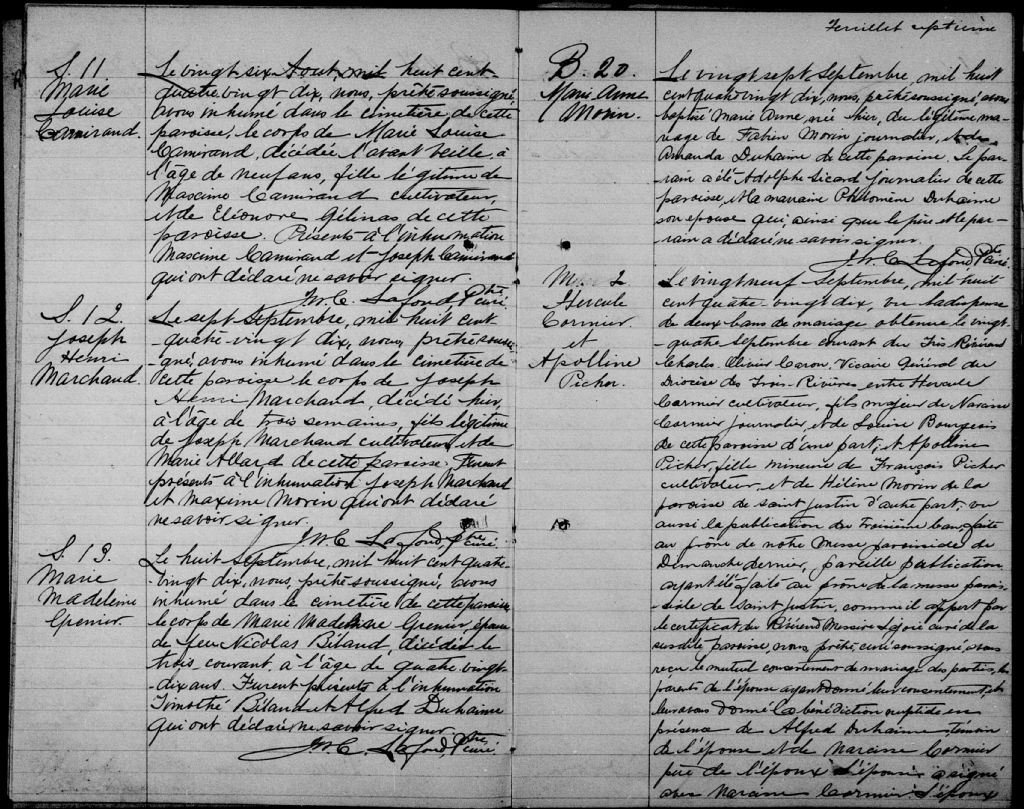 S. 11.
Marie
Louise
Camirand.
Le vingt six Aout, mil huit cent-
quatre vingt dix, nous, prêtre soussigné,
avons inhumé dans le cimetière de cette
paroisse, le corps de Marie Louise
Camirand, décédée l'avant veille, à
l'âge de neuf ans, fille légitime de
Maxime Camirand cultivateur,
et de Eléonore Gélinas de cette
paroisse. Présents à l'inhumation
Maxime Camirand et Joseph Camirand
qui ont déclaré ne savoir signer.
Ptre
curé
S. 12.
Joseph
Henri
Marchand.
Le sept Septembre, mil huit cent-
-quatre-vingt dix, nous, prêtre soussi-
gné, avons inhumé dans le cimetière de
cette paroisse le corps de Joseph
Henri Marchand, décédé hier,
à l'âge de trois semaines, fils légitime
de Joseph Marchand cultivateur et de
Marie Allard de cette paroisse. Furent
présents à l'inhumation Joseph Marchand
et Maxime Morin qui ont déclaré
ne savoir signer.
Lafond, Ptre
curé.
S. 13.
Marie
Madeleine
Grenier.
Le huit Septembre, mil huit cent quatre
-vingt dix, nous, prêtre soussigné, avons
inhumé dans le cimetière de cette paroisse,
le corps de Marie Madeleine Grenier, épouse
de feu Nicolas Biland, décédée le
trois courant, à l'âge de quatre vingt
-dix ans. Furent présents à l'inhumation
Timothé Biland et Alfred Duhaime
qui ont déclaré ne savoir signer.
Lafond, Ptre
curé.
Feuillet septième
B. 20.
Marie Anne
Morin.
Le vingt sept Septembre, mil huit
cent quatre vingt dix, nous, prêtre soussigné, avons
baptisé Marie Anne, née hier, du légitime ma-
riage de Fabien Morin journalier, et de
Amanda Duhaime de cette paroisse. Le par-
rain a été Adolphe Sicard journalier de cette
paroisse, et la marraine Philomène Duhaime
son épouse qui, ainsi que le père et le par-
rain a déclaré ne savoir signer.
Lafond, Ptre
curé.
M. 2
Hercule
Cormier.
et
Apolline
Picher.
Le vingt neuf Septembre, mil huit
cent quatre-vingt dix, vu la dispense
de deux bans de mariage obtenue le vingt-
-quatre Septembre courant du Très Révérend
Charles Olivier Caron, Vicaire Général du
Diocèse des Trois-Rivières, entre Hercule
Cormier cultivateur, fils majeur de Narcisse
Cormier journalier, et de Louise Bourgeois
de cette paroisse d'une part; et Apolline
Picher, fille mineure de François Picher
cultivateur, et de Hélène Morin de la
paroisse de saint Justin d'autre part; vu
aussi la publication du troisième ban, faite
au prône de notre Messe paroissiale de
Dimanche dernier, pareille publication
ayant été faite au prône de la messe parois-
-siale de Saint Justin, comme il appert par
le certificat du Révérend Messire Lajoie curé de la
susdite paroisse, nous, prêtre curé soussigné, avons
reçu le mutuel consentement de mariage des parties, les
parents de l'épouse ayant donné leur consentement, et
leur avons donné la bénédiction nuptiale en
présence de Alfred Duhaime, témoin
de l'épouse et de Narcisse Cormier
père de l'époux. L'épouse a signé
avec Narcisse Cormier. L'époux